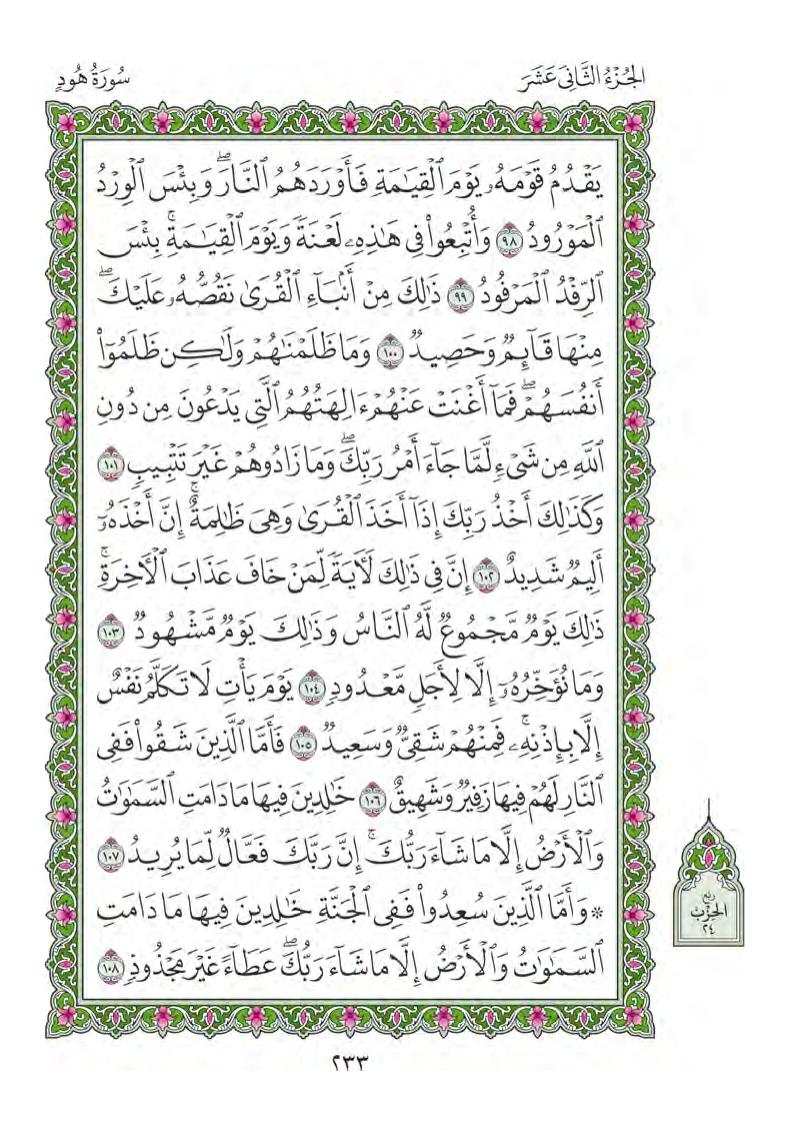 الجُزْءُ الثَّانِي عَشَرَ
سُورَةُ هُودٍ
يَقْدُمُ قَوْمَهُۥ يَوْمَ ٱلْقِيَٰمَةِ فَأَوْرَدَهُمُ ٱلنَّارَۖ وَبِئْسَ ٱلْوِرْدُ
ٱلْمَوْرُودُ ٩٨ وَأُتْبِعُوا۟ فِى هَٰذِهِۦ لَعْنَةً وَيَوْمَ ٱلْقِيَٰمَةِۚ بِئْسَ
ٱلرِّفْدُ ٱلْمَرْفُودُ ٩٩ ذَٰلِكَ مِنْ أَنۢبَآءِ ٱلْقُرَىٰ نَقُصُّهُۥ عَلَيْكَۖ
مِنْهَا قَآئِمٌ وَحَصِيدٌ ١٠٠ وَمَا ظَلَمْنَٰهُمْ وَلَٰكِن ظَلَمُوٓا۟
أَنفُسَهُمْۖ فَمَآ أَغْنَتْ عَنْهُمْ ءَالِهَتُهُمُ ٱلَّتِى يَدْعُونَ مِن دُونِ
ٱللَّهِ مِن شَىْءٍ لَّمَّا جَآءَ أَمْرُ رَبِّكَۖ وَمَا زَادُوهُمْ غَيْرَ تَتْبِيبٍ ١٠١
وَكَذَٰلِكَ أَخْذُ رَبِّكَ إِذَآ أَخَذَ ٱلْقُرَىٰ وَهِىَ ظَٰلِمَةٌۚ إِنَّ أَخْذَهُۥٓ
أَلِيمٌ شَدِيدٌ ١٠٢ إِنَّ فِى ذَٰلِكَ لَءَايَةً لِّمَنْ خَافَ عَذَابَ ٱلْءَاخِرَةِۚ
ذَٰلِكَ يَوْمٌ مَّجْمُوعٌ لَّهُ ٱلنَّاسُ وَذَٰلِكَ يَوْمٌ مَّشْهُودٌ ١٠٣
وَمَا نُؤَخِّرُهُۥٓ إِلَّا لِأَجَلٍ مَّعْدُودٍ ١٠٤ يَوْمَ يَأْتِ لَا تَكَلَّمُ نَفْسٌ
إِلَّا بِإِذْنِهِۦۚ فَمِنْهُمْ شَقِىٌّ وَسَعِيدٌ ١٠٥ فَأَمَّا ٱلَّذِينَ شَقُوا۟ فَفِى
ٱلنَّارِ لَهُمْ فِيهَا زَفِيرٌ وَشَهِيقٌ ١٠٦ خَٰلِدِينَ فِيهَا مَا دَامَتِ ٱلسَّمَٰوَٰتُ
وَٱلْأَرْضُ إِلَّا مَا شَآءَ رَبُّكَۚ إِنَّ رَبَّكَ فَعَّالٌ لِّمَا يُرِيدُ ١٠٧
* وَأَمَّا ٱلَّذِينَ سُعِدُوا۟ فَفِى ٱلْجَنَّةِ خَٰلِدِينَ فِيهَا مَا دَامَتِ
ٱلسَّمَٰوَٰتُ وَٱلْأَرْضُ إِلَّا مَا شَآءَ رَبُّكَۖ عَطَآءً غَيْرَ مَجْذُوذٍ ١٠٨
رُبْعُ
الحِزْبِ
٢٤
٢٣٣